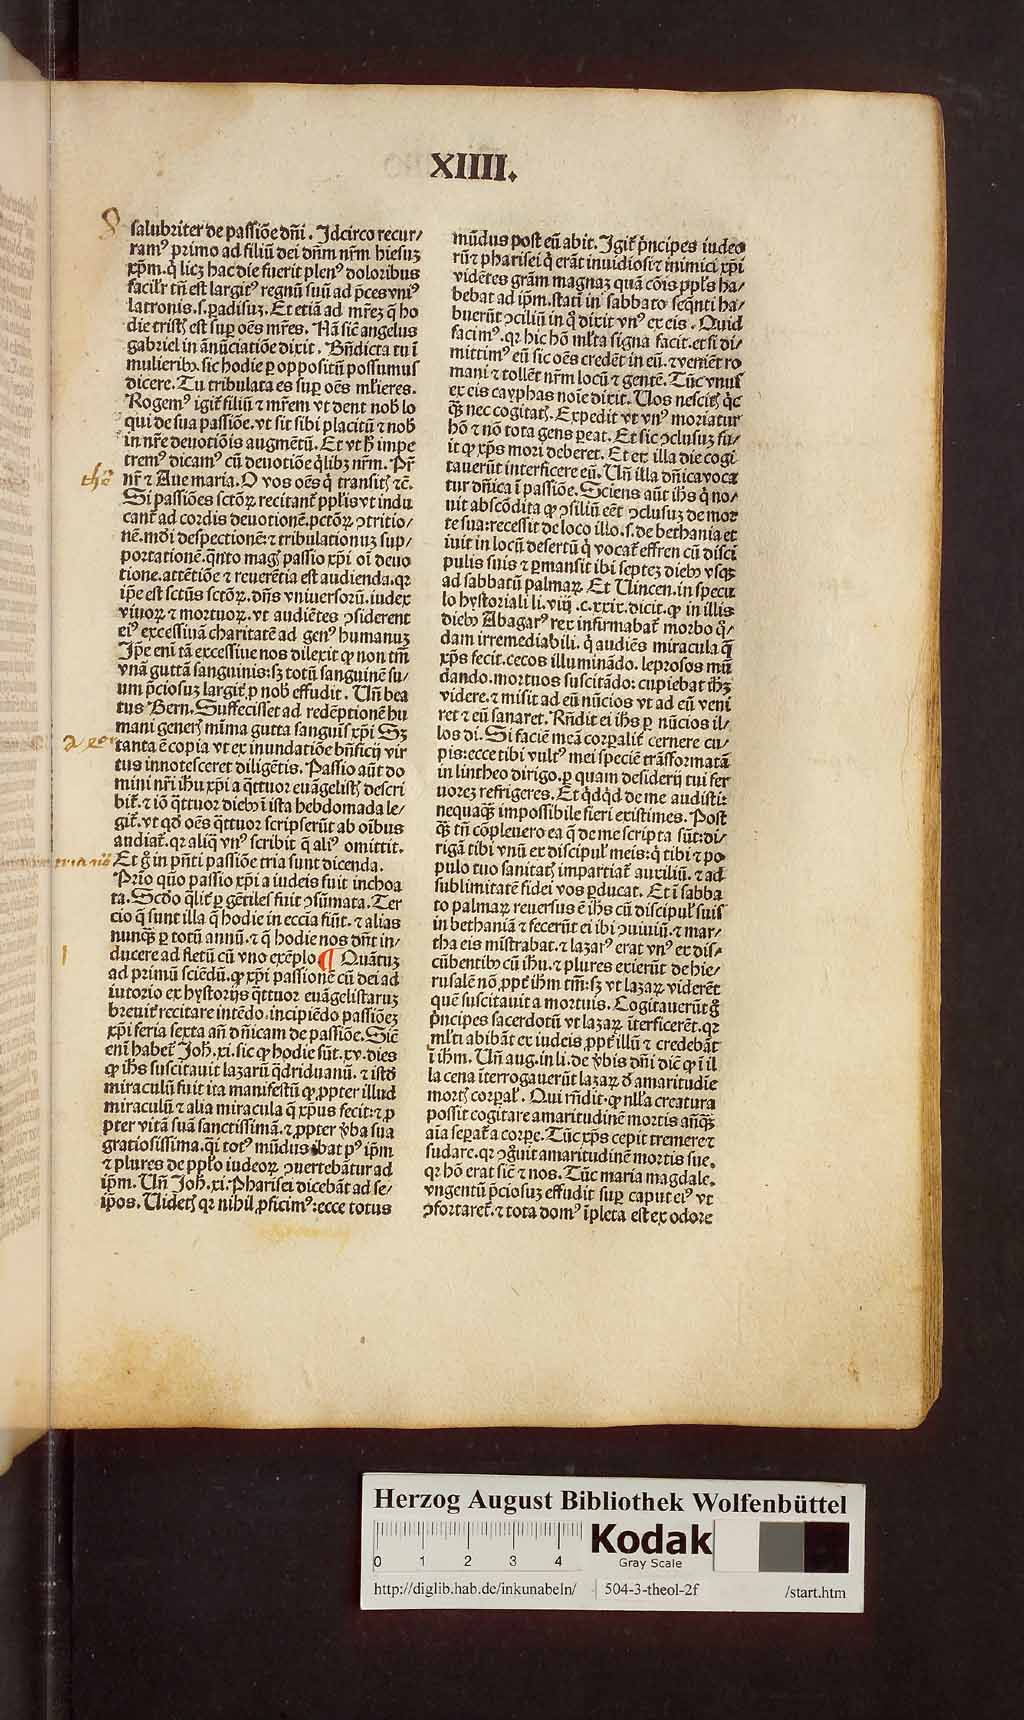 XIIII.
salubriter de passiõe dñi. Idcirco recur/
ramꝰ primo ad filiũ dei dñm nr̃m hiesuʒ
xp̃m. q̇ licʒ hac die fuerit plenꝰ doloribus
facilr̃ tñ est largitꝰ regnũ suũ ad p̃ces vniꝰ
latronis .s. ꝑadisuʒ. Et etiã ad mr̃eʒ q̃ ho
die tristꝭ est suꝑ oẽs mr̃es. Nã sic̃ angelus
gabriel in ãnũciatiõe dixit. Bñdicta tu ĩ
mulieribꝰ. sic hodie ꝑ oppositũ possumus
dicere. Tu tribulata es suꝑ oẽs ml̃ieres.
Rogemꝰ igit̃ filiũ ⁊ mr̃em vt dent nob̃ lo
qui de sua passiõe. vt sit sibi placitũ ⁊ nob̃
in nr̃e deuotiõis augmẽtũ. Et vt h̃ impe
tremꝰ dicamꝰ cũ deuotiõe q̃libʒ nr̃m. Pr̃
nr̃ ⁊ Aue maria. O vos oẽs q̇ transitꝭ ⁊c̃.
Si passiões sctõꝝ recitant̃ pp̃lis vt indu
cant̃ ad cordis deuotionẽ. pctõꝝ ↄtritio/
nẽ. mũdi despectionẽ: ⁊ tribulationuʒ sup/
portationẽ. q̃nto magꝭ passio xp̃i oĩ deuo
tione. attẽtiõe ⁊ reuerẽtia est audienda. qꝛ
ip̃e est sctũs sctõꝝ. dñs vniuersorũ. iudex
viuoꝝ ⁊ mortuoꝝ. vt audiẽtes ↄsiderent
eiꝰ excessiuã charitatẽ ad genꝰ humanuʒ
Ip̃e eni tã excessiue nos dilexit ꝙ non tm̃
vnã guttã sanguinis: sʒ totũ sanguinẽ su/
um p̃ciosuʒ largit̃ ꝓ nob̃ effudit. Vñ bea
tus Bern. Suffecisset ad redẽptionẽ hu
mani generꝭ mĩma gutta sanguis̃ xp̃i Sʒ
tanta ẽ copia vt ex inundatiõe bñficij vir
tus innotesceret diligẽtis. Passio aũt do
mini nr̃i ihũ xp̃i a q̃ttuor euãgelistꝭ descri
bit̃. ⁊ iõ q̃ttuor diebꝰ ĩ ista hebdomada le/
git̃. vt qd̃ oẽs q̃ttuor scripserũt ab oĩbus
audiat̃. qꝛ aliq̃ vnꝰ scribit q̃ aliꝰ omittit.
Et g̃ in pñti passiõe tria sunt dicenda.
Prĩo quõ passio xp̃i a iudeis fuit inchoa
ta. Scd̃o q̃lit̃ ꝑ gẽtiles fuit ↄsũmata. Ter
cio q̃ sunt illa q̃ hodie in ecc̃ia fiũt. ⁊ alias
nunqꝫ ꝑ totũ annũ. ⁊ q̃ hodie nos dñt in/
ducere ad fletũ cũ vno exẽplo ¶ Quãtuʒ
ad primũ sciẽdũ. ꝙ xp̃i passionẽ cũ dei ad
iutorio ex hystorijs q̃ttuor euãgelistaruʒ
breuit̃ recitare intẽdo. incipiẽdo passiõeʒ
xp̃i feria sexta añ dñicam de passiõe. Sic̃
enĩ habet̃ Joh̃. xi. sic ꝙ hodie sũt .xv. dies
ꝙ ihs̃ suscitauit lazarũ q̃driduanũ. ⁊ istd̃
miraculũ fuit ita manifestũ ꝙ ꝓpter illud
miraculũ ⁊ alia miracula q̃ xp̃us fecit: ⁊ ꝓ
pter vitã suã sanctissimã. ⁊ ꝓpter v̾ba sua
gratiosissima. q̃i totꝰ mũdus ibat pꝰ ip̃m
⁊ plures de pp̃lo iudeoꝝ ↄuertebãtur ad
ip̃m. Vñ Joh̃. xi. Pharisei dicebãt ad se/
ip̃os. Videtꝭ qꝛ nihil ꝓficimꝰ: ecce totus
mũdus post eũ abit. Igit̃ p̃ncipes iudeo
rũ ⁊ pharisei q̇ erãt inuidiosi ⁊ inimici xp̃i
vidẽtes gr̃am magnaʒ quã cõis pp̃ls ha/
bebat ad ip̃m. stati in sabbato seq̃nti ha/
buerũt ↄciliũ in q̇ dixit vnꝰ ex eis. Quid
facimꝰ. qꝛ hic hõ ml̃ta signa facit. et si di/
mittimꝰ eũ sic oẽs credẽt in eũ. ⁊ veniẽt ro
mani ⁊ tollẽt nr̃m locũ ⁊ gentẽ. Tũc vnus
ex eis cayphas noĩe dixit. Uos nescitꝭ q̇c
qꝫ nec cogitatꝭ. Expedit vt vnꝰ moriatur
hõ ⁊ nõ tota gens ꝑeat. Et sic ↄclusuʒ fu/
it ꝙ xp̃s mori deberet. Et ex illa die cogi
tauerũt interficere eũ. Vñ illa dñica voca
tur dñica ĩ passiõe. Sciens aũt ihs̃ q̇ no/
uit abscõdita ꝙ ↄsiliũ eẽt ↄclusuʒ de mor
te sua: recessit de loco illo .s. de bethania et
iuit in locũ desertũ q̇ vocat̃ effren cũ disci
pulis suis ⁊ ꝑmansit ibi septeʒ diebꝰ vsqꝫ
ad sabbatũ palmaꝝ. Et Vincen. in specu
lo hystoriali li. viij .c. xxix. dicit. ꝙ in illis
diebꝰ Abagarꝰ rex infirmabat̃ morbo q̇/
dam irremediabili. q̇ audiẽs miracula q̃
xp̃s fecit. cecos illuminãdo. leprosos mũ
dando. mortuos suscitãdo: cupiebat ihʒ̃
videre. ⁊ misit ad eũ nũcios vt ad eũ veni
ret ⁊ eũ sanaret. Rñdit ei ihs̃ ꝑ nũcios il/
los di. Si faciẽ meã corꝑalit̃ cernere cu/
pis: ecce tibi vultꝰ mei speciẽ trãsformatã
in lintheo dirigo. ꝑ quam desiderij tui fer
uoreʒ refrigeres. Et q̇dq̇d de me audisti:
nequaqꝫ impossibile fieri existimes. Post
qꝫ tñ cõpleuero ea q̃ de me scripta sũt: di/
rigã tibi vnũ ex discipul̃ meis: q̇ tibi ⁊ po
pulo tuo sanitatꝭ impartiat̃ auxiliũ. ⁊ ad
sublimitatẽ fidei vos ꝑducat. Et ĩ sabba
to palmaꝝ reuersus ẽ ihs̃ cũ discipul̃ suis
in bethaniã ⁊ fecerũt ei ibi ↄuiuiũ. ⁊ mar/
tha eis mĩstrabat. ⁊ lazarꝰ erat vnꝰ ex dis/
cũbentibꝰ cũ ihũ. ⁊ plures exierũt de hie/
rusalẽ nõ ꝓpt̃ ihm̃ tm̃: sʒ vt lazaꝝ viderẽt
quẽ suscitauit a mortuis. Cogitauerũt g̃
p̃ncipes sacerdotũ vt lazaꝝ ĩterficerẽt. qꝛ
ml̃ti abibãt ex iudeis ꝓpt̃ illũ ⁊ credebãt
ĩ ihm̃. Vñ aug. in li. de v̾bis dñi dic̃ ꝙ ĩ il
la cena ĩterrogauerũt lazaꝝ d̃ amaritudĩe
mortꝭ corꝑal̃. Qui rñdit. ꝙ nll̃a creatura
possit cogitare amaritudinẽ mortis añqꝫ
aĩa seꝑat̃ a corꝑe. Tũc xp̃s cepit tremere ⁊
sudare. qꝛ ↄg̃uit amaritudinẽ mortis sue.
qꝛ hõ erat sic̃ ⁊ nos. Tũc maria magdale.
vngentũ p̃ciosuʒ effudit suꝑ caput eiꝰ vt
ↄfortaret̃. ⁊ tota domꝰ ĩpleta est ex odore
Herzog August Bibliothek Wolfenbüttel
0 1 2 3 4
Kodak
Gray Scale
http://diglib.hab.de/inkunabeln/ 504-3-theol-2f /start.htm